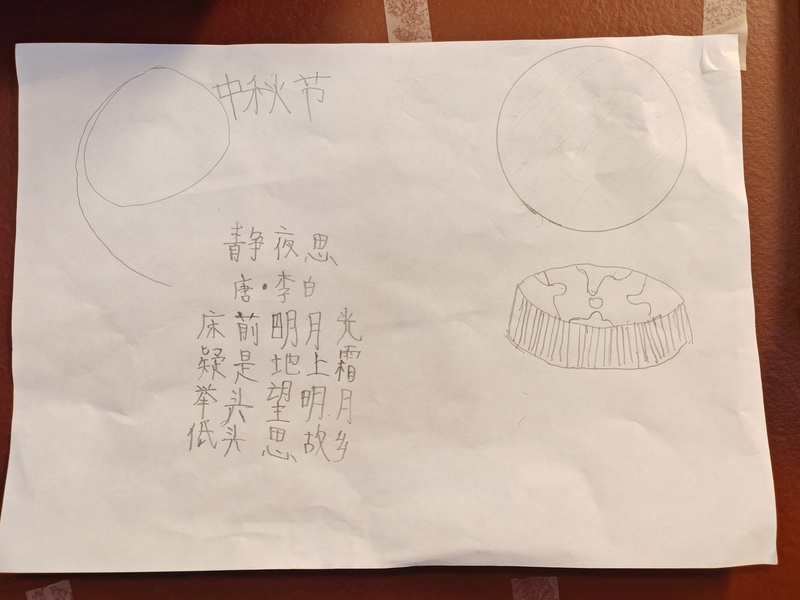 中秋节
静夜思
唐·李白
床前明月光
疑是地上霜
举头望明月
低头思故乡